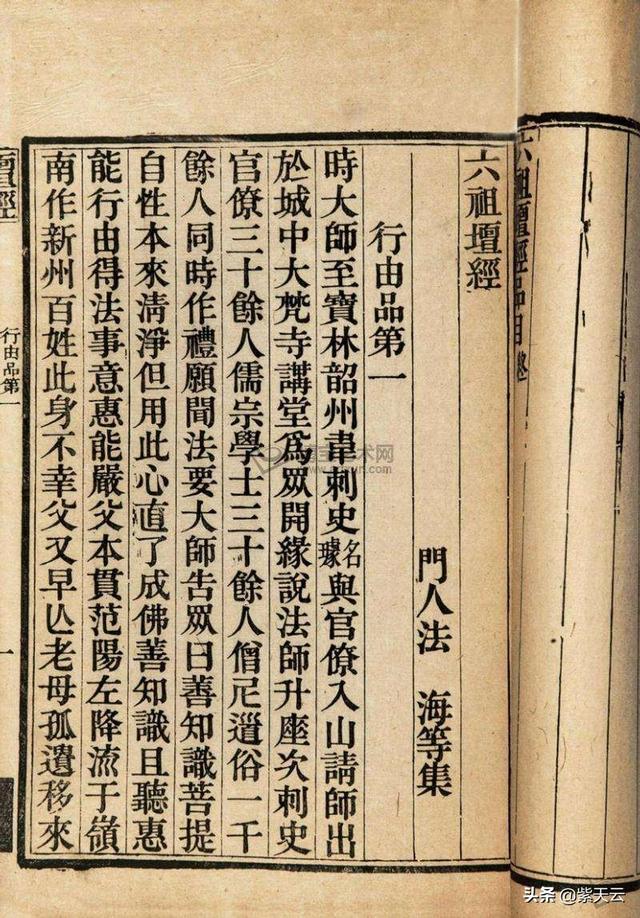 六祖壇經品目
六祖壇經
門人法　海等集
行由品第一
時大師至寶林韶州韋刺史名璩與官僚入山請師出
於城中大梵寺講堂爲眾開緣說法師升座次刺史
官僚三十餘人儒宗學士三十餘人僧尼道俗一千
餘人同時作禮願聞法要大師告眾曰善知識菩提
自性本來清淨但用此心直了成佛善知識且聽惠
能行由得法事意惠能嚴父本貫范陽左降流于嶺
南作新州百姓此身不幸父又早亾老母孤遺移來
壇經
行由品第一
一
头条 @紫天云